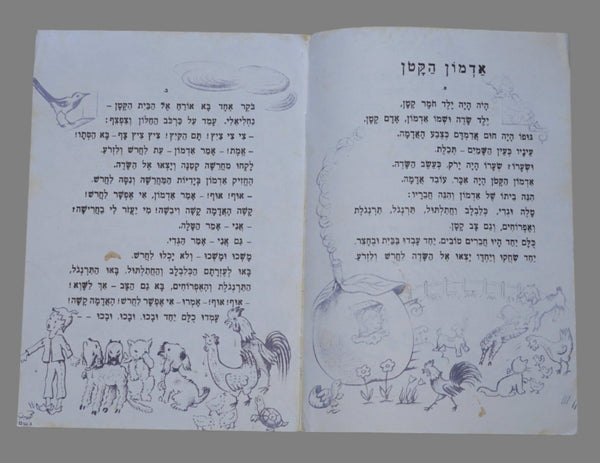 אַדְמוֹן הַקָּטָן
א
הָיֹה הָיָה יֶלֶד חֹמֶר קָטָן,
יֶלֶד שָׂדֶה וּשְׁמוֹ אַדְמוֹן, אָדָם קָטָן,
גּוּפוֹ הָיָה חוּם אֲדַמְדַּם כְּצֶבַע הָאֲדָמָה.
עֵינָיו כְּעֵין הַשָּׁמַיִם – תְּכֵלֶת.
וּשְׂעָרוֹ? שְׂעָרוֹ הָיָה יָרֹק, כְּעֵשֶׂב הַשָּׂדֶה.
אַדְמוֹן הַקָּטָן הָיָה אִכָּר. עוֹבֵד אֲדָמָה.
הִנֵּה בֵּיתוֹ שֶׁל אַדְמוֹן וְהִנֵּה חֲבֵרָיו:
טָלֶה וּגְדִי, כְּלַבְלַב וַחֲתַלְתּוּל, תַּרְנְגוֹל, תַּרְנְגֹלֶת
וְאֶפְרוֹחִים, וְגַם צָב קָטָן.
כֻּלָּם יַחַד הָיוּ חֲבֵרִים טוֹבִים. יַחַד עָבְדוּ בַּבַּיִת וּבֶחָצֵר.
יַחַד שִׂחֲקוּ וְיַחְדָּו יָצְאוּ אֶל הַשָּׂדֶה לַחֲרֹשׁ וְלִזְרֹעַ.
ב
בֹּקֶר אֶחָד בָּא אוֹרֵחַ אֶל הַבַּיִת הַקָּטָן.
נַחֲלִיאֵלִי. עָמַד עַל כַּרְכֹּב הַחַלּוֹן וְצִפְצֵף:
– צִי צִי צִיץ! תַּם הַקַּיִץ! צִיץ צִיץ צָף – בָּא הַסְּתָו!
– אֱמֶת! – אָמַר אַדְמוֹן, – עֵת לַחֲרֹשׁ וְלִזְרֹעַ.
לָקְחוּ מַחֲרֵשָׁה קְטַנָּה וְיָצְאוּ אֶל הַשָּׂדֶה.
הֶחֱזִיק אַדְמוֹן בְּיָדִיּוֹת הַמַּחֲרֵשָׁה וְנִסָּה לַחֲרֹשׁ.
– אוּף! אוּף! – אָמַר אַדְמוֹן, – אִי אֶפְשָׁר לַחֲרֹשׁ!
קָשָׁה הָאֲדָמָה קָשָׁה וִיבֵשָׁה! מִי יַעֲזֹר לִי בַּחֲרִישָׁה?
– אֲנִי! – אָמַר הַטָּלֶה.
– גַּם אֲנִי! – אָמַר הַגְּדִי.
מָשְׁכוּ וּמָשְׁכוּ – וְלֹא יָכְלוּ לַחֲרֹשׁ.
בָּאוּ לְעֶזְרָתָם הַכְּלַבְלַב וְהַחֲתַלְתּוּל. בָּאוּ הַתַּרְנְגוֹל,
הַתַּרְנְגֹלֶת וְהָאֶפְרוֹחִים, בָּא גַּם הַצָּב – אַךְ לַשָּׁוְא!
– אוּף! אוּף! – אָמְרוּ – אִי אֶפְשָׁר לַחֲרֹשׁ! הָאֲדָמָה קָשָׁה!
עָמְדוּ כֻּלָּם יַחַד וּבָכוּ. וּבָכוּ, וּבָכוּ –